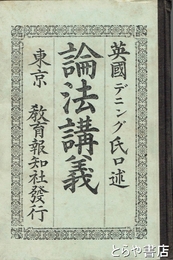 英國デニング氏口述
論法講義
東京 敎育報知社發行
とらや書店